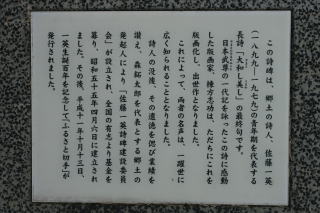 この詩碑は、郷土の詩人、佐藤一英
(一八九九ー一九七九)の青年期を代表する
長詩「大和し美し」の最終句です。
日本武尊の一代記を詠ったこの詩に感動
した版画家、棟方志功は、ただちにこれを
版画化し、出世作となりました。
これによって、両者の名声は、一躍世に
広く知られることとなりました。
詩人の没後、その遺徳を偲び業績を
讃え、森鉐太郎を代表とする郷土の
発起人により、「佐藤一英詩碑建設委員
会」が設立され、全国の有志より基金を
募り、昭和五十五年四月六日に建立され
ました。その後、平成十一年十月十三日、
一英生誕百年を記念して「ふるさと切手」が
発行されました。